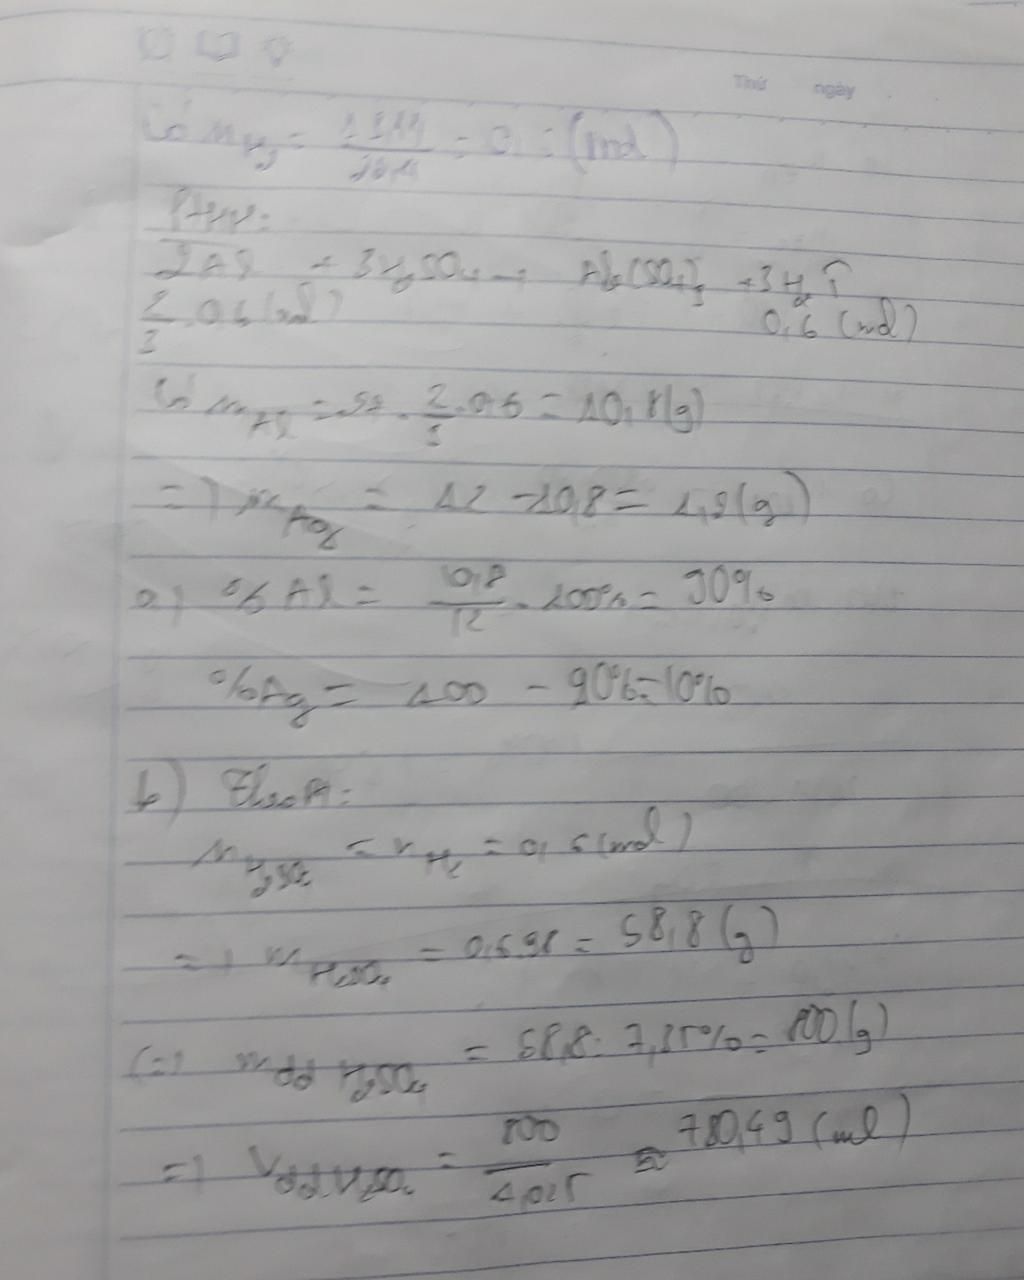 Thứ ngày
Có n_H2 = 13,44/22,4 = 0,6 (mol)
PTHH:
2Al + 3H2SO4 → Al2(SO4)3 + 3H2↑
2/3 . 0,6 (mol) 0,6 (mol)
Có m_Al = 27 . 2/3 . 0,6 = 10,8 (g)
=> m_Ag = 12 - 10,8 = 1,2 (g)
a) % Al = 10,8/12 . 100% = 90%
%Ag = 100 - 90% = 10%
b) Theo PT:
n_H2SO4 = n_H2 = 0,6 (mol)
=> m_H2SO4 = 0,6.98 = 58,8 (g)
(=) m_dd H2SO4 = 58,8 : 7,35% = 800 (g)
=> V_dd H2SO4 = 800/1,025 ≈ 780,49 (ml)